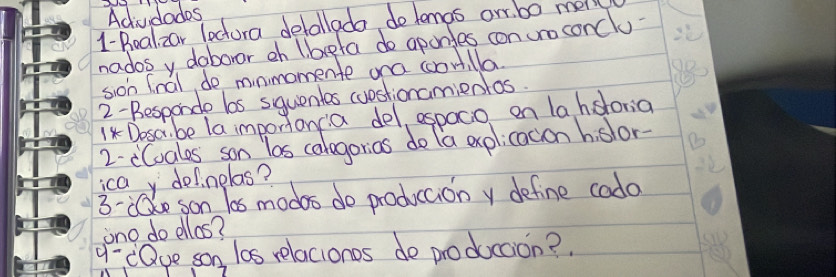 Actividades
1-Realizar lectura detallada de temas arriba
nados y elaborar en libreta de apuntes con una conclu-
sión final de minimamente una cuartilla.
2-Responde los siguientes cuestionamientos.
1* Describe la importancia del espacio en la historia
2-¿Cuales son las categorias de la explicación histor-
ica y definelas?
3-¿Que son los modos de producción y define cada
uno de ellos?
4-¿Que son las relaciones de producción?.